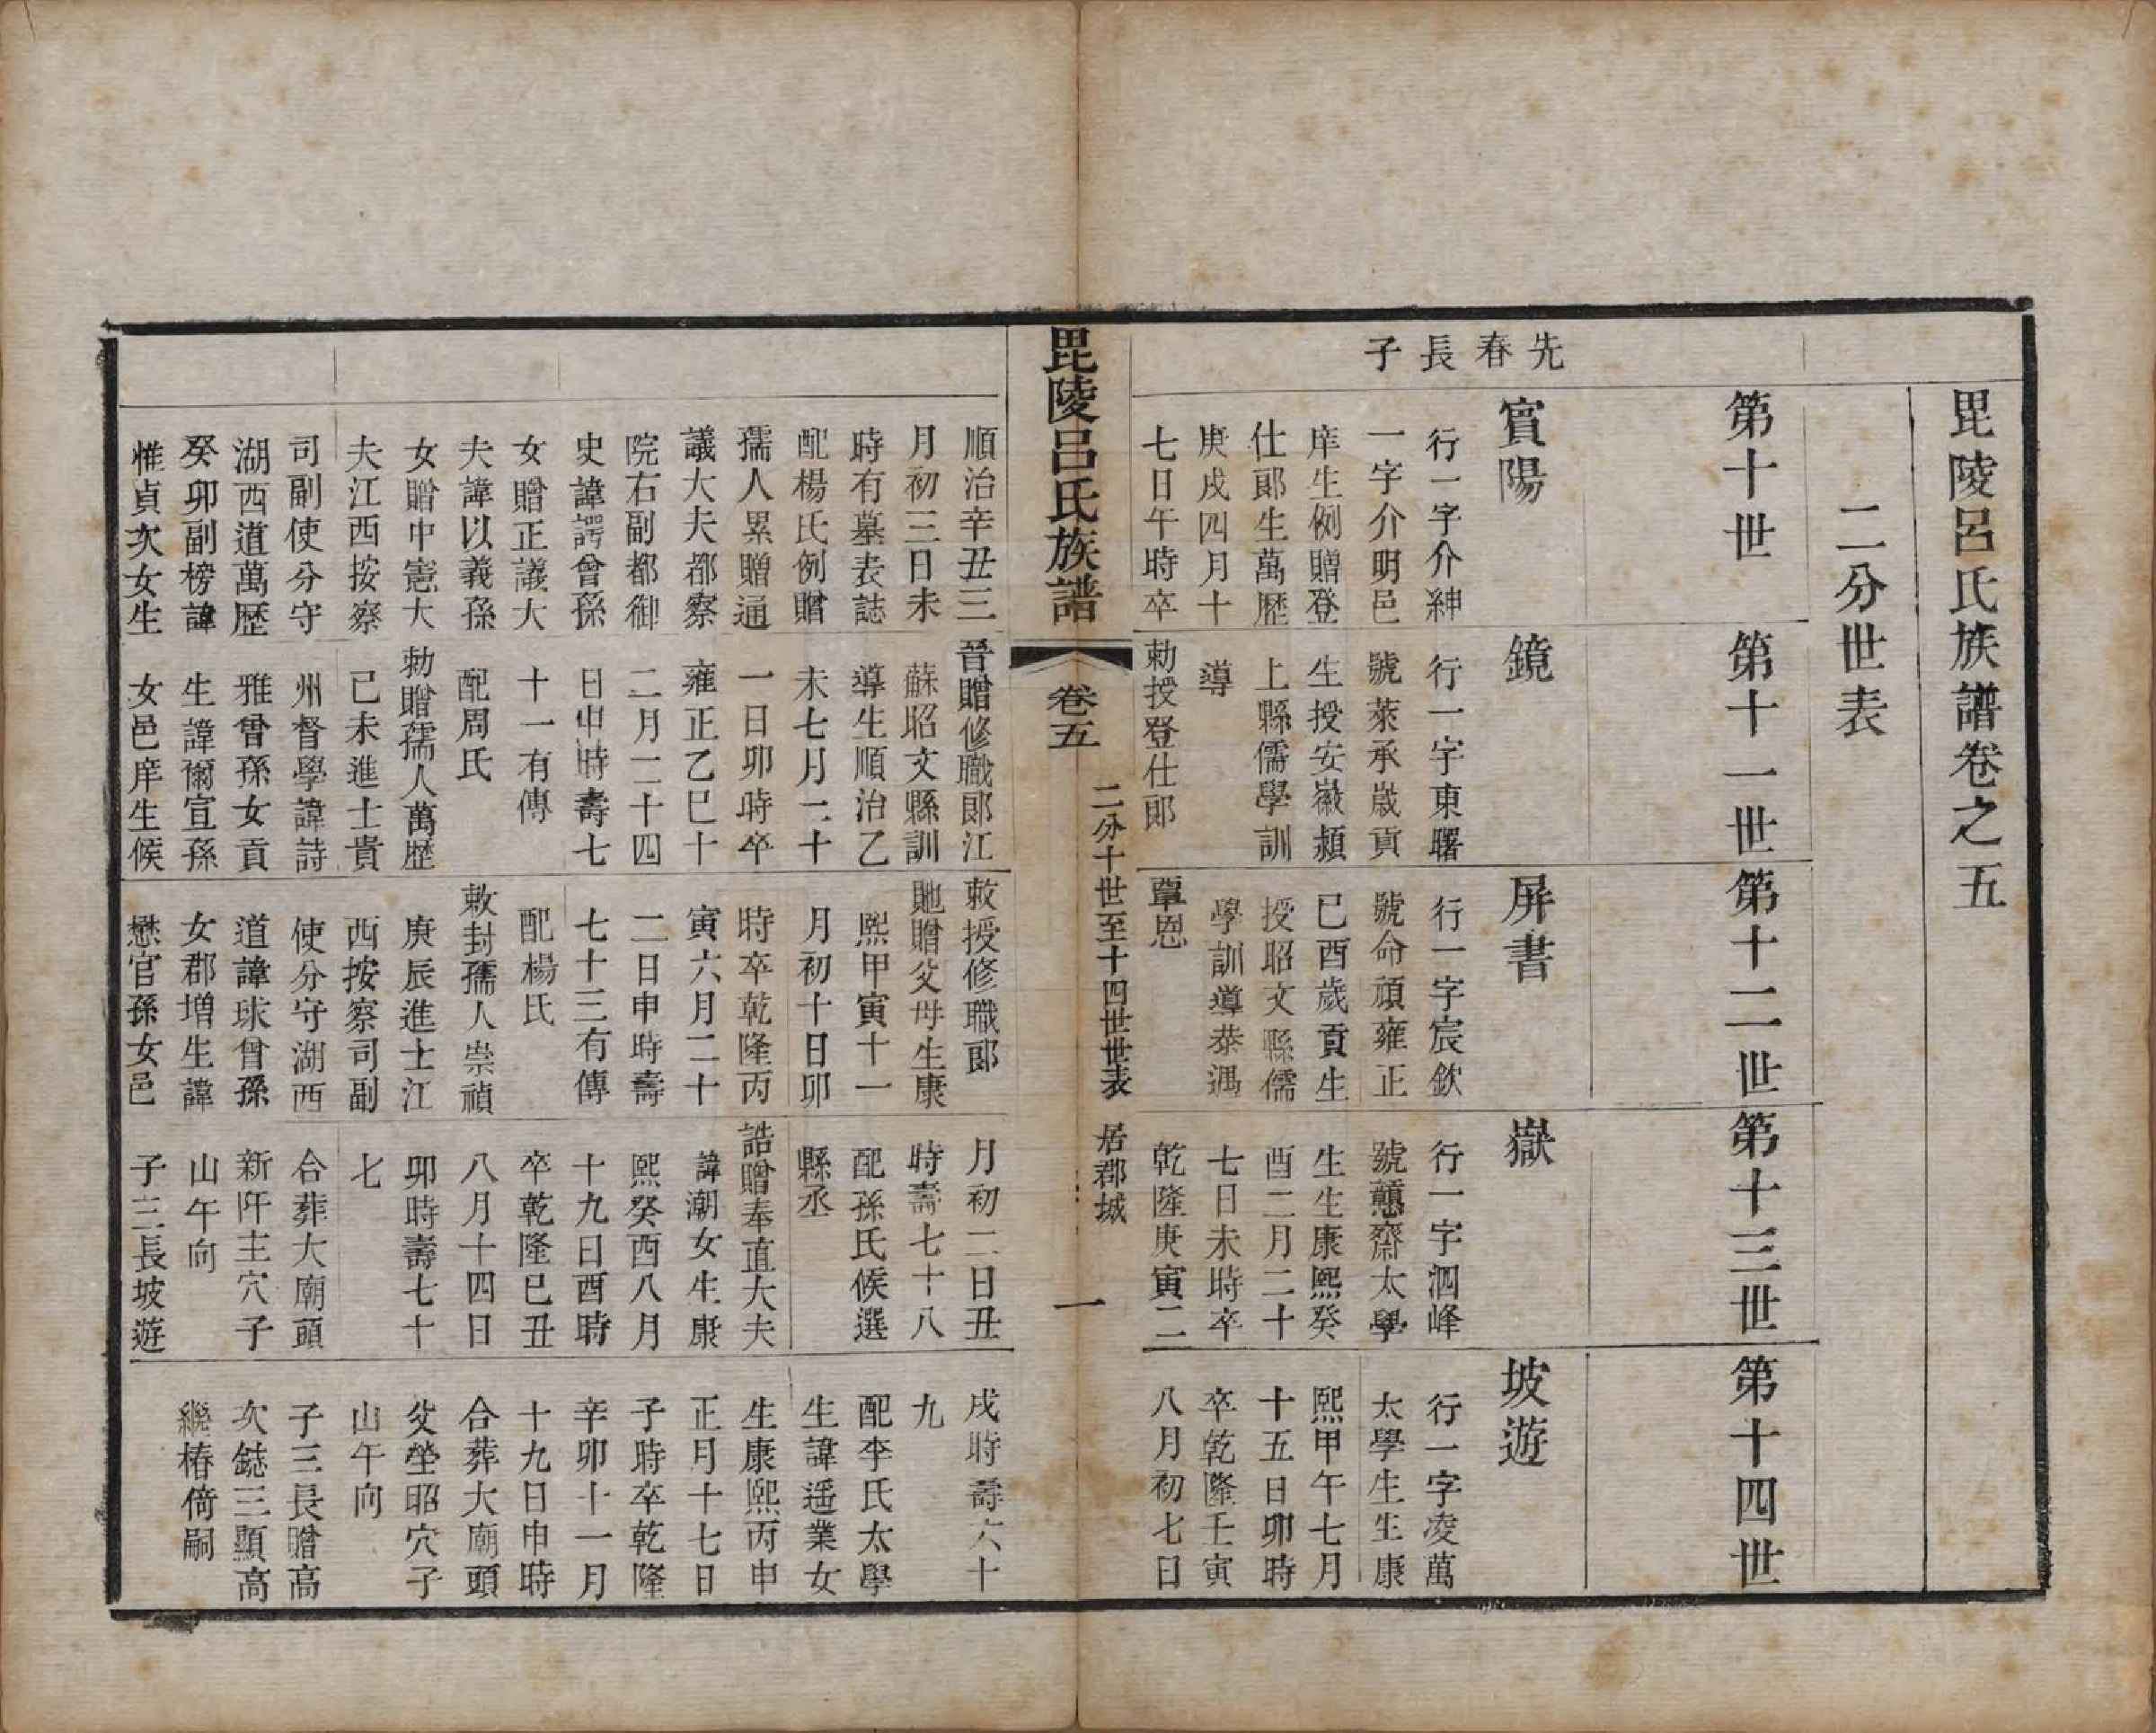 毘陵呂氏族譜卷之五
二分世表
第十世
第十一世
第十二世
第十三世
第十四世
先春長子
賓陽
行一字介紳
一字介明邑
庠生例贈登
仕郎生萬歷
庚戌四月十
七日午時卒
順治辛丑三
月初三日未
時有墓表誌
配楊氏例贈
孺人累贈通
議大夫都察
院右副都御
史諱諤曾孫
女贈正議大
夫諱以義孫
女贈中憲大
夫江西按察
司副使分守
湖西道萬歷
癸卯副榜諱
惟貞次女生
鏡
行一字東曙
號萊承歲貢
生授安徽潁
上縣儒學訓
導
勅授登仕郎
晉贈修職郎江
蘇昭文縣訓
導生順治乙
未七月二十
一日卯時卒
雍正乙巳十
二月二十四
日申時壽七
十一有傳
配周氏
勅贈孺人萬歷
己未進士貴
州督學諱詩
雅曾孫女貢
生諱爾宣孫
女邑庠生候
屏書
行一字宸欽
號命碩雍正
己酉歲貢生
授昭文縣儒
學訓導恭遇
覃恩
敕授修職郎
貤贈父母生康
熙甲寅十一
月初十日卯
時卒乾隆丙
寅六月二十
二日申時壽
七十三有傳
配楊氏
敕封孺人崇禎
庚辰進士江
西按察司副
使分守湖西
道諱球曾孫
女郡增生諱
懋官孫女邑
嶽
行一字泗峰
號戇齋太學
生生康熙癸
酉二月二十
七日未時卒
乾隆庚寅二
月初二日丑
時壽七十八
配孫氏候選
縣丞
誥贈奉直大夫
諱潮女生康
熙癸酉八月
十九日酉時
卒乾隆己丑
八月十四日
卯時壽七十
七
合葬大廟頭
新阡主穴子
山午向
子三長坡遊
坡遊
行一字凌萬
太學生生康
熙甲午七月
十五日卯時
卒乾隆壬寅
八月初七日
戌時壽六十
九
配李氏太學
生諱遥業女
生康熙丙申
正月十七日
子時卒乾隆
辛卯十一月
十九日申時
合葬大廟頭
父塋昭穴子
山午向
子三長贈高
次鋕三顯高
繼椿倚嗣
毘陵呂氏族譜
卷五
二分十世至十四世世表
居郡城
一